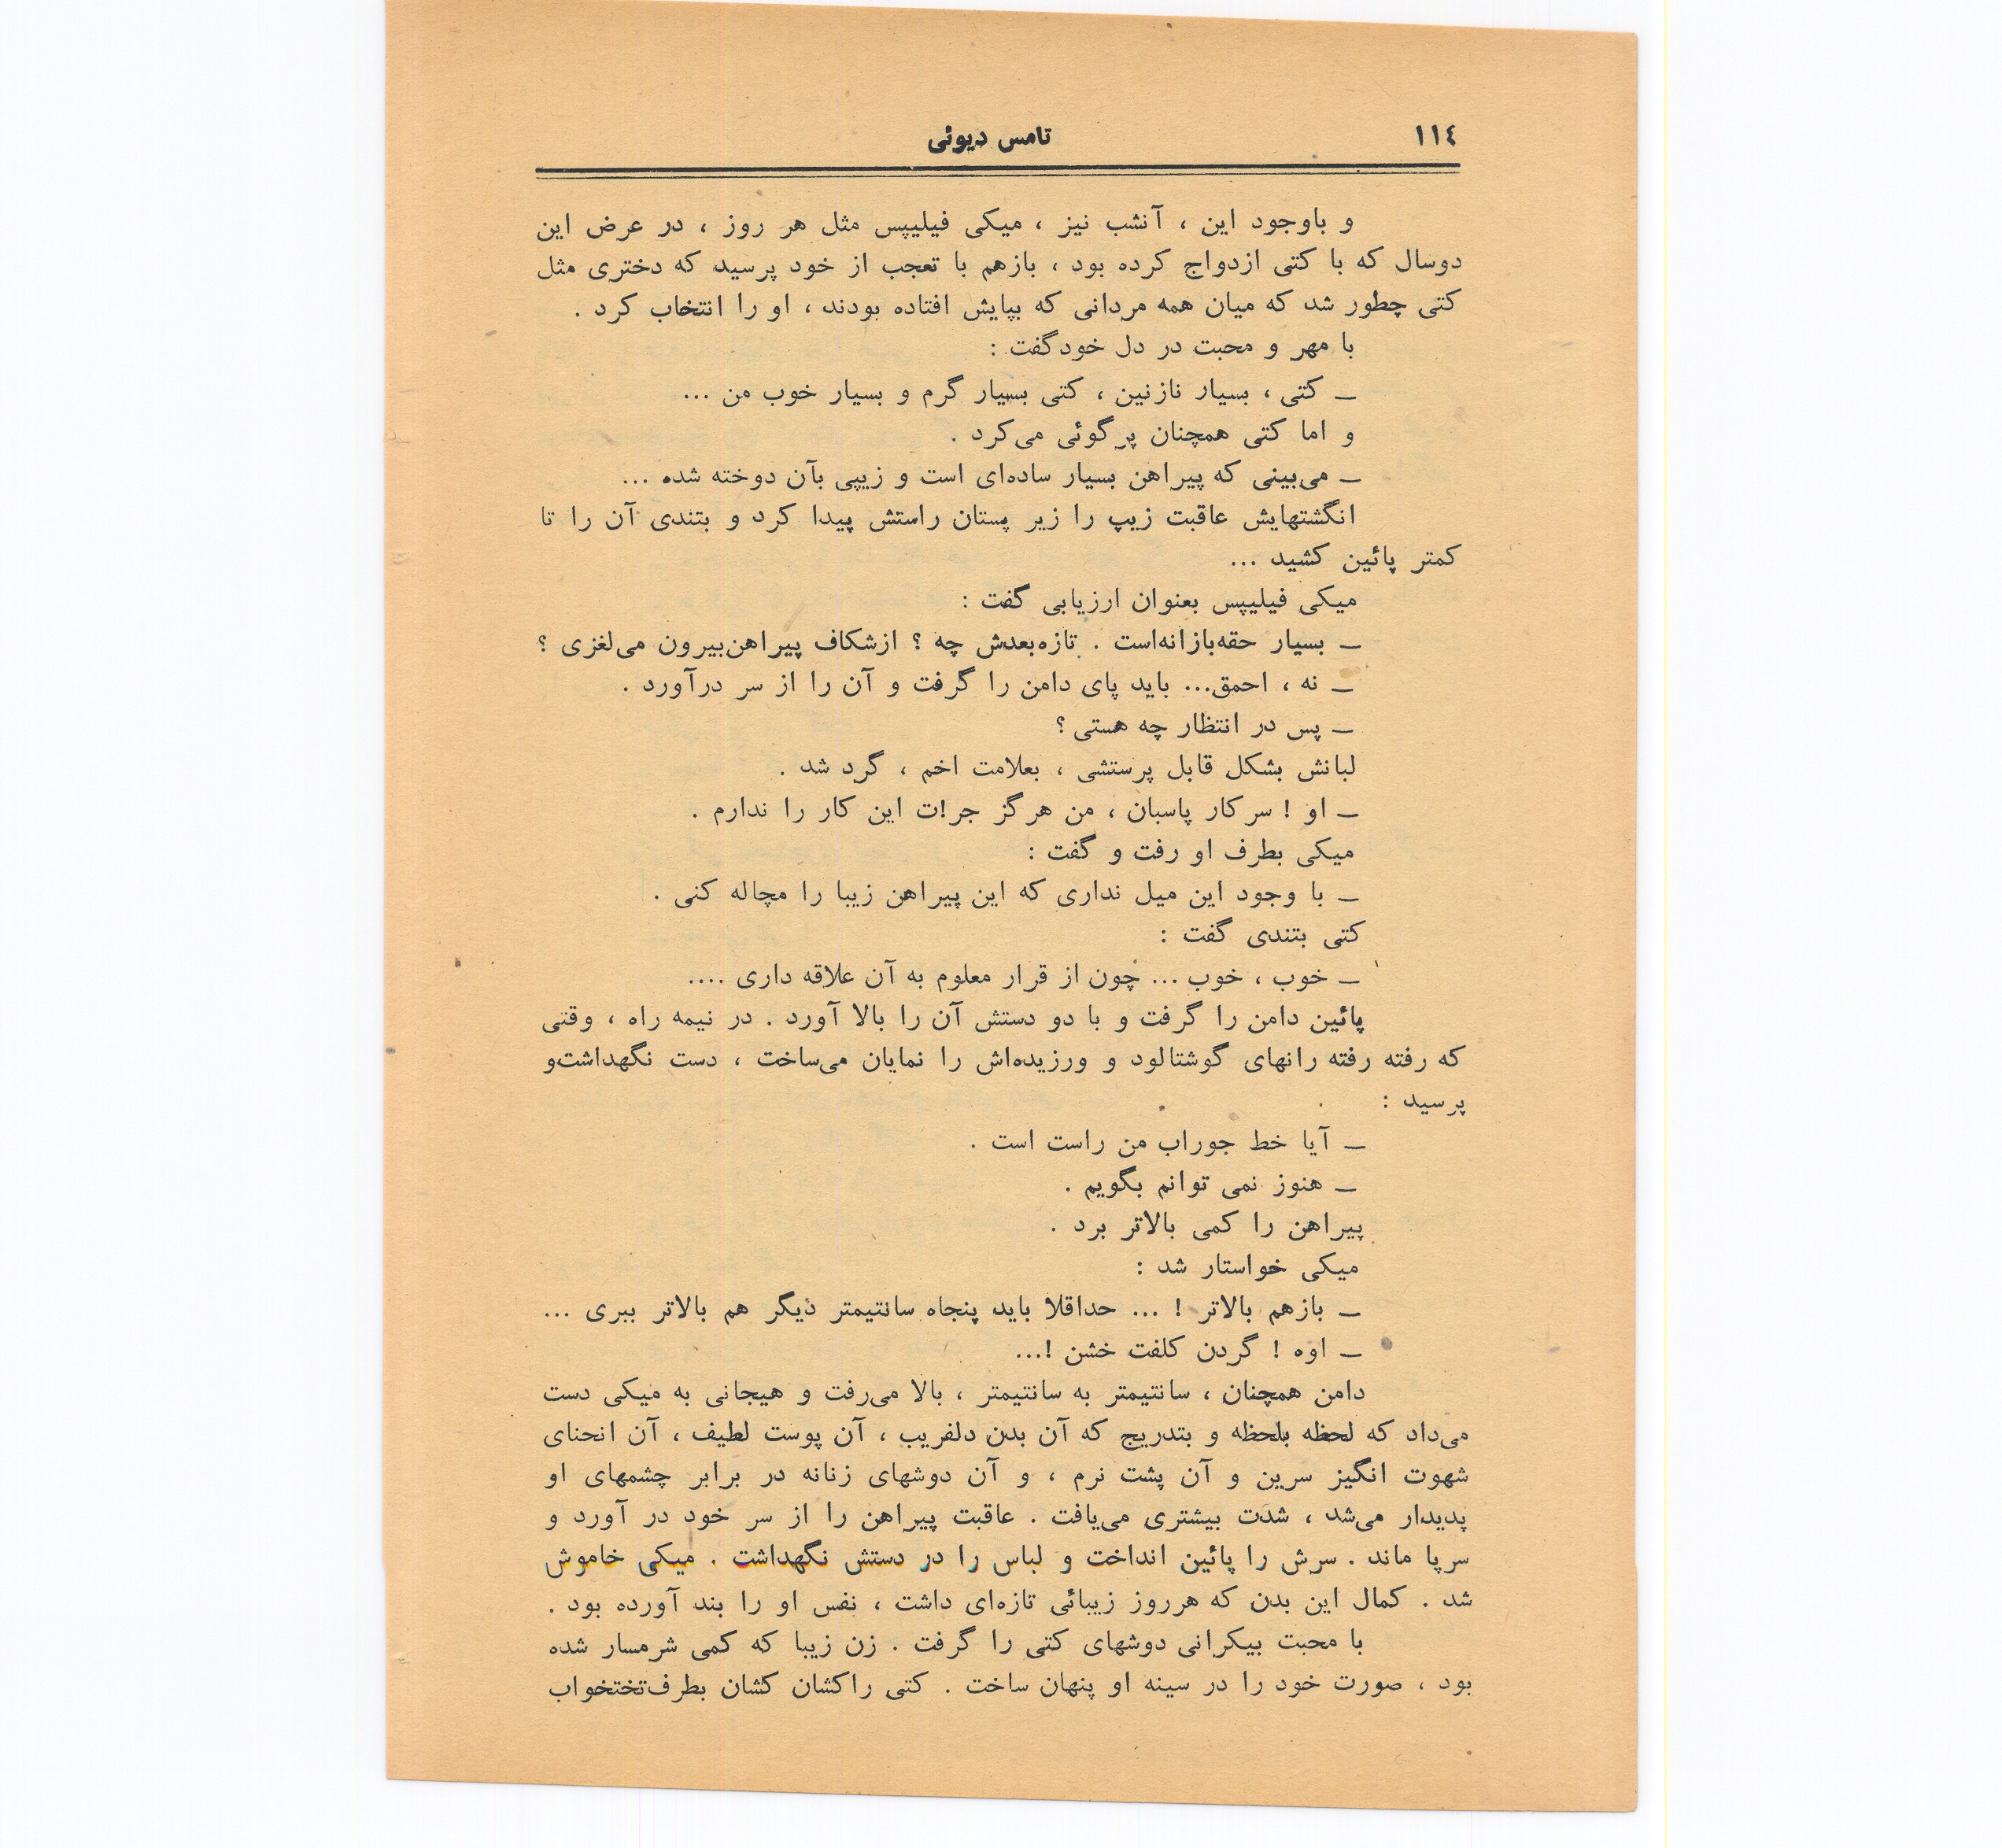 ١١٤
تامس دیوئی
و باوجود این ، آنشب نیز ، میکی فیلیپس مثل هر روز ، در عرض این
دوسال که با کتی ازدواج کرده بود ، بازهم با تعجب از خود پرسید که دختری مثل
کتی چطور شد که میان همه مردانی که بپایش افتاده بودند ، او را انتخاب کرد .
با مهر و محبت در دل خودگفت :
ـ کتی ، بسیار نازنین ، کتی بسیار گرم و بسیار خوب من ...
و اما کتی همچنان پرگوئی می‌کرد .
ـ می‌بینی که پیراهن بسیار ساده‌ای است و زیپی بآن دوخته شده ...
انگشتهایش عاقبت زیپ را زیر پستان راستش پیدا کرد و بتندی آن را تا
کمتر پائین کشید ...
میکی فیلیپس بعنوان ارزیابی گفت :
ـ بسیار حقه‌بازانه‌است . تازه‌بعدش چه ؟ ازشکاف پیراهن‌بیرون می‌لغزی ؟
ـ نه ، احمق... باید پای دامن را گرفت و آن را از سر درآورد .
ـ پس در انتظار چه هستی ؟
لبانش بشکل قابل پرستشی ، بعلامت اخم ، گرد شد .
ـ او ! سرکار پاسبان ، من هرگز جر!ت این کار را ندارم .
میکی بطرف او رفت و گفت :
ـ با وجود این میل نداری که این پیراهن زیبا را مچاله کنی .
کتی بتندی گفت :
ـ خوب ، خوب ... چون از قرار معلوم به آن علاقه داری ....
پائین دامن را گرفت و با دو دستش آن را بالا آورد . در نیمه راه ، وقتی
که رفته رفته رانهای گوشتالود و ورزیده‌اش را نمایان می‌ساخت ، دست نگهداشت‌و
پرسید :
ـ آیا خط جوراب من راست است .
ـ هنوز نمی توانم بگویم .
پیراهن را کمی بالاتر برد .
میکی خواستار شد :
ـ بازهم بالاتر ! ... حداقلا باید پنجاه سانتیمتر دیگر هم بالاتر ببری ...
ـ اوه ! گردن کلفت خشن !...
دامن همچنان ، سانتیمتر به سانتیمتر ، بالا می‌رفت و هیجانی به میکی دست
می‌داد که لحظه بلحظه و بتدریج که آن بدن دلفریب ، آن پوست لطیف ، آن انحنای
شهوت انگیز سرین و آن پشت نرم ، و آن دوشهای زنانه در برابر چشمهای او
پدیدار می‌شد ، شدت بیشتری می‌یافت . عاقبت پیراهن را از سر خود در آورد و
سرپا ماند . سرش را پائین انداخت و لباس را در دستش نگهداشت . میکی خاموش
شد . کمال این بدن که هرروز زیبائی تازه‌ای داشت ، نفس او را بند آورده بود .
با محبت بیکرانی دوشهای کتی را گرفت . زن زیبا که کمی شرمسار شده
بود ، صورت خود را در سینه او پنهان ساخت . کتی راکشان کشان بطرف‌تختخواب